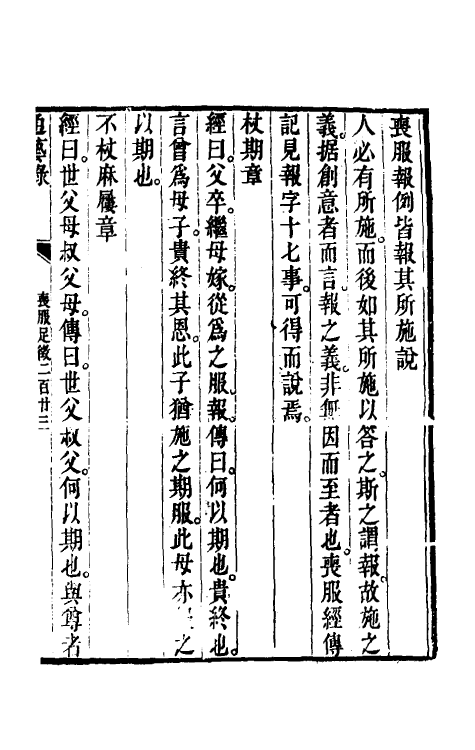 喪服報例皆報其所施說
人必有所施而後如其所施以答之斯之謂報故施之
義据創意者而言報之義非無因而至者也喪服經傳
記見報字十七事可得而說焉
杖期章
經曰父卒繼母嫁從爲之服報傳曰何以期也貴終也
言曾爲母子貴終其恩此子猶施之期服此母亦 之
以期也
不杖麻屨章
經曰世父母叔父母傳曰世父叔父何以期也與尊者
通藝錄
喪服足徵二百廿三